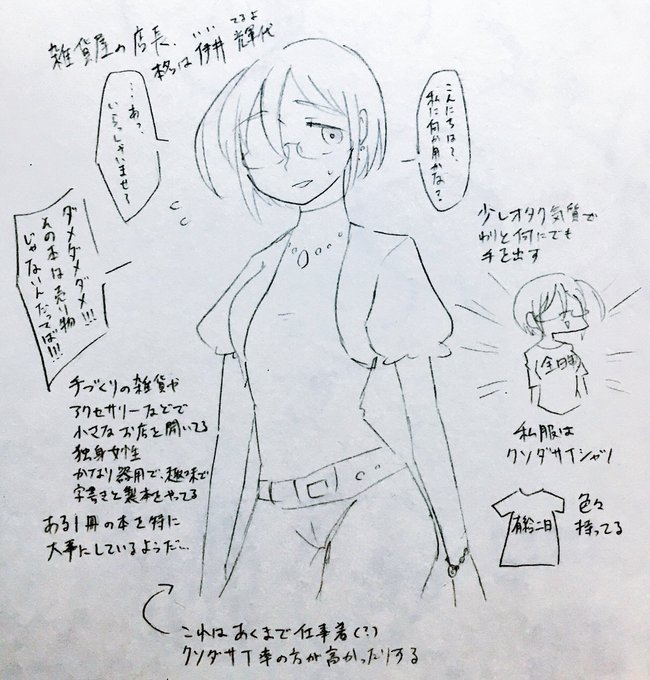 雑貨屋の店長
名は 伊井 輝代
いい てるよ
…あっ、
いらっしゃいませ〜
こんにちは？
私に何か用かな？
ダメダメダメ!!!
その本は売り物
じゃないんだってば!!!
少しオタク気質で
わりと何にでも
手を出す
全日本
私服は
クソダサTシャツ
有給二日
色々
持ってる
手づくりの雑貨や
アクセサリーなどで
小さなお店を開いてる
独身女性
かなり器用で、趣味で
字書きと製本をやってる
ある1冊の本を特に
大事にしているようだ…
これはあくまで仕事着(?)
クソダサT率の方が高かったりする